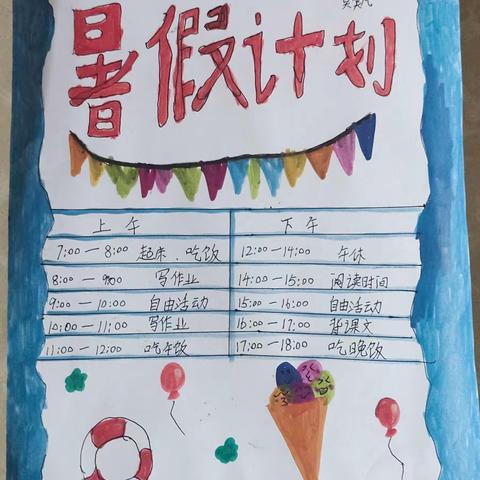 暑假计划
上午 下午
7:00—8:00 起床、吃饭 12:00—14:00 午休
8:00—9:00 写作业 14:00—15:00 阅读时间
9:00—10:00 自由活动 15:00—16:00 自由活动
10:00—11:00 写作业 16:00—17:00 背课文
11:00—12:00 吃午饭 17:00—18:00 吃晚饭